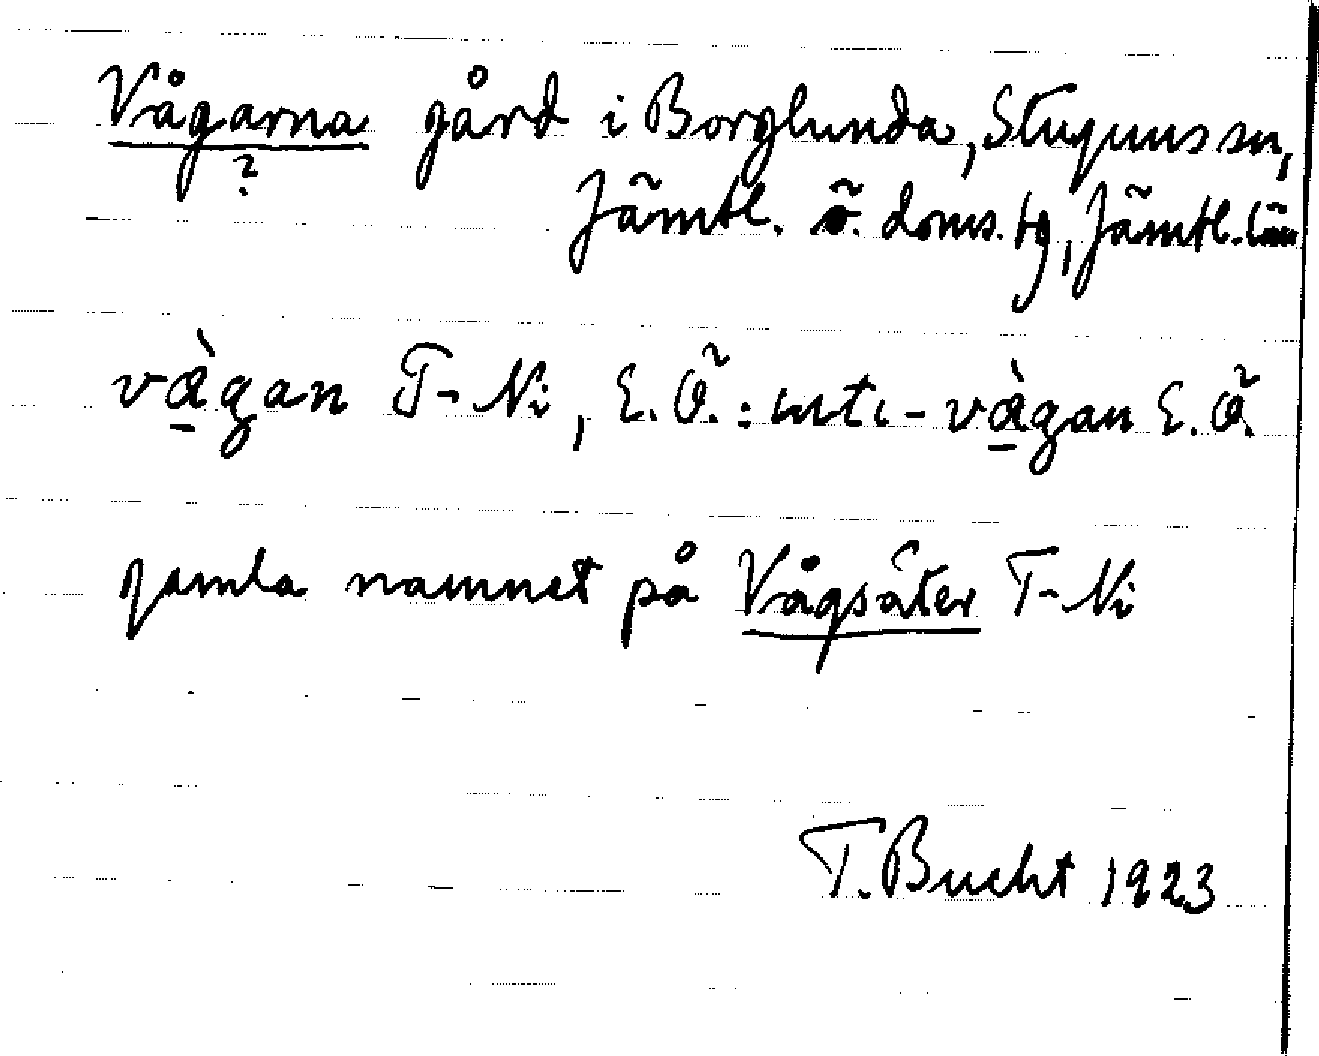 Vågarna gård i Borglunda, Stuguns sn,
?
Jämtl. ö. doms. tg, Jämtl. län
và̱gan T-Ni, E. Ö.: ute-và̱gan E. Ö.
gamla namnet på Vågsäter T-Ni
T. Bucht 1923